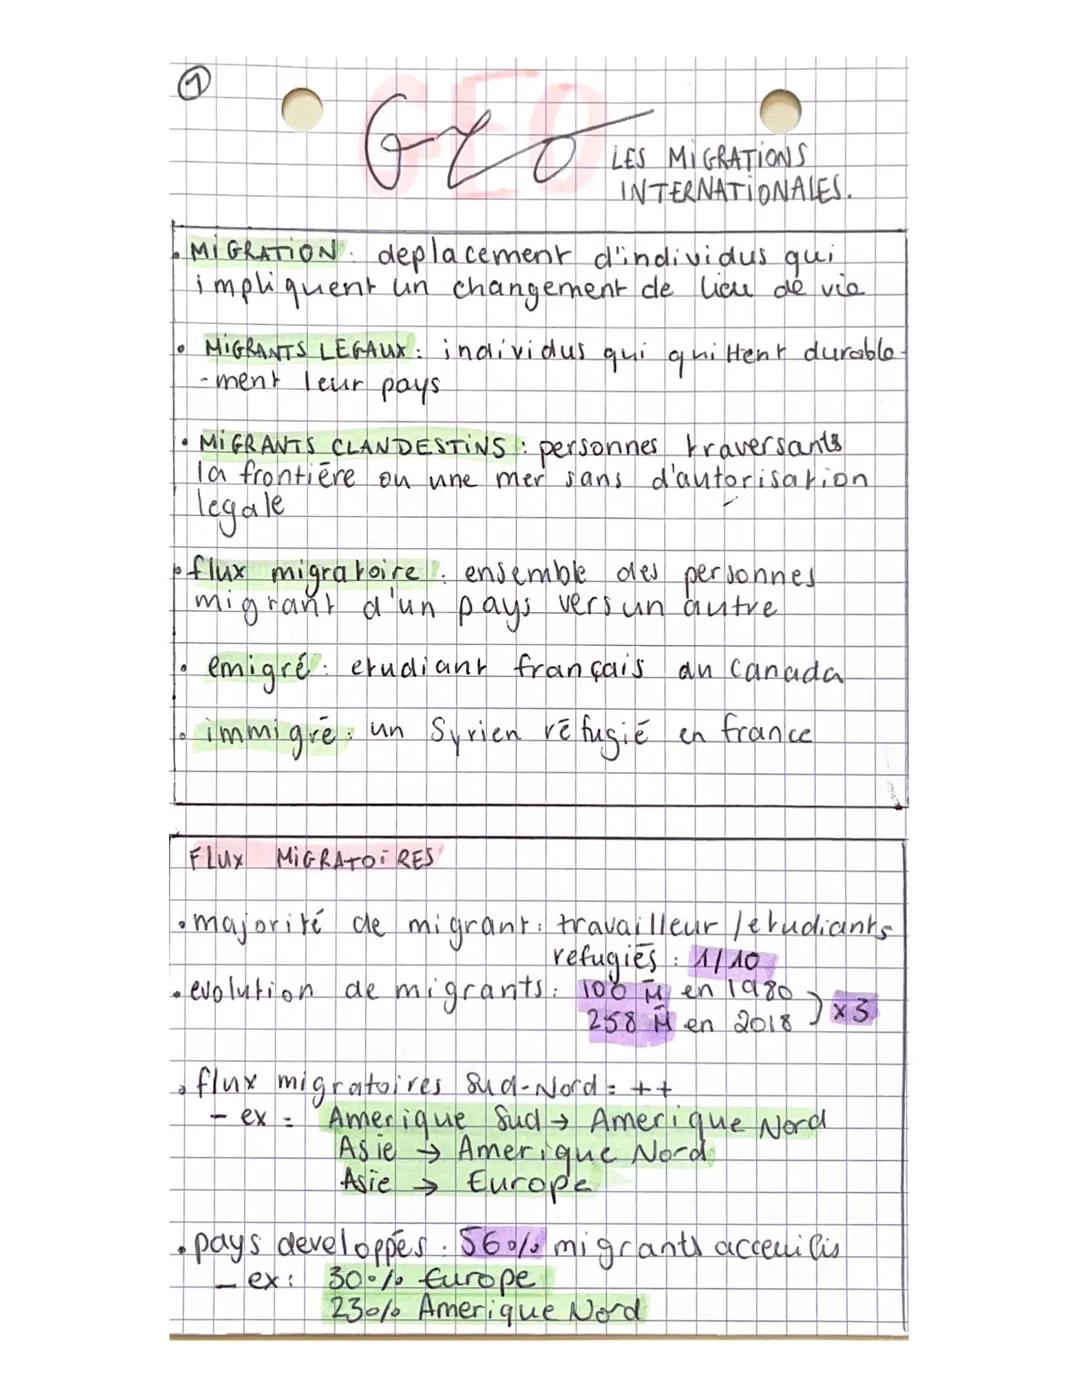 1
GEO
Geo
LES MIGRATIONS
INTERNATIONALES.
• MIGRATION : deplacement d'individus qui
impliquent un changement de lieu de vie
• MIGRANTS LEGAUX : individus qui quittent durable-
-ment leur pays
• MIGRANTS CLANDESTINS : personnes traversants
la frontière ou une mer sans d'autorisation
legale
• flux migratoire : ensemble des personnes
migrant d'un pays vers un autre
• emigré : etudiant français au Canada
• immigré : un Syrien réfugié en france
FLUX MIGRATOIRES
• majorité de migrant : travailleur / etudiants
refugiés : 1/10
• evolution de migrants : 100 M en 1980
258 M en 2018 ) x3
• flux migratoires Sud-Nord = ++
- ex = Amerique Sud → Amerique Nord
Asie → Amerique Nord
Asie → Europe
• pays developpés : 56% migrants acceuilis
- ex : 30% Europe
23% Amerique Nord